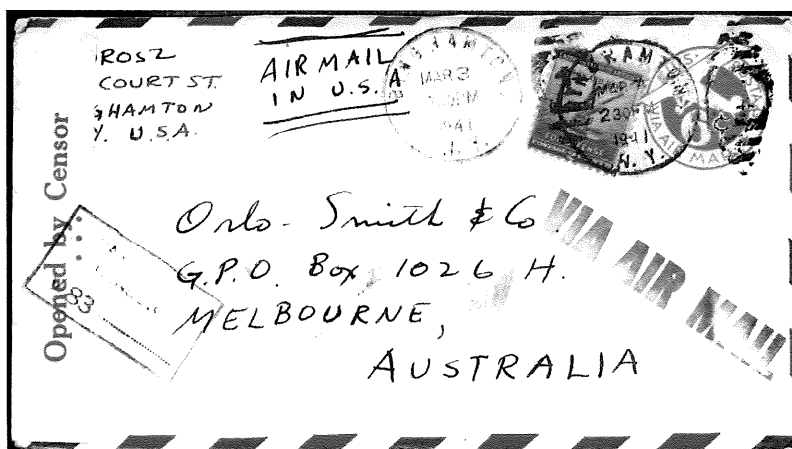 ROSZ
COURT ST.
GHAMTON
Y. U.S.A.
AIR MAIL
IN U.S.A
MAR 3
PM
1941
MAR
230PM
1941
N.Y.
VIA AIR MAIL
Opened by Censor
83
Orlo-Smith & Co.
G.P.O. Box 1026 H.
MELBOURNE,
AUSTRALIA
VIA AIR MAIL